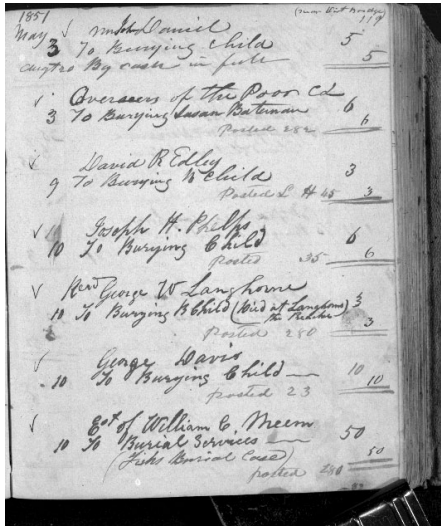 1851
(near Wist Bridge)
117
May ✓ Mr John Daniel
3 To Burying Child 5
Augt 20 By cash in full 5
✓ Overseers of the Poor Cd
3 To Burying Susan Bateman 6
Posted 282 6
✓ David R Edley
9 To Burying B Child 3
Posted L H 45 3
✓ Joseph H. Phelps
10 To Burying Child 6
Posted 35 6
✓ Revd George W Langhorne
10 To Burying B Child (Died at Langhorns) 3
the Preacher
posted 280 3
✓ George Davis
10 To Burying Child 10
posted 23 10
✓ Est of William C. Meem
10 To Burial Services 50
(Fisks Burial Case) 50
posted 280